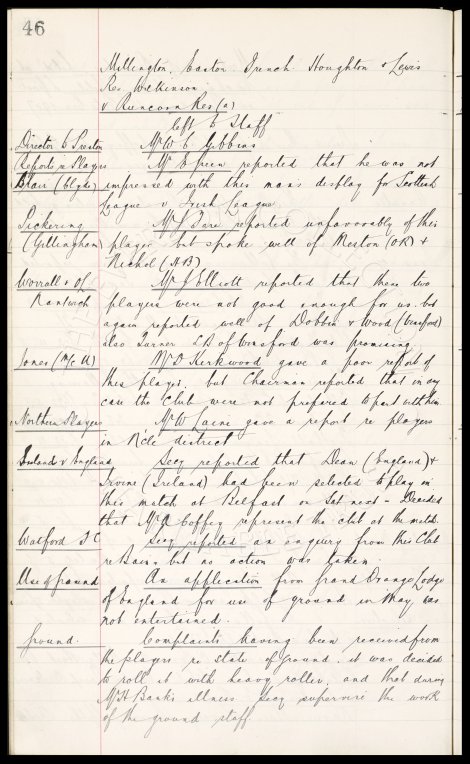 46
Millington, Easton, French, Houghton & Lewis
Re Wilkinson
v Runcorn Res (a)
left to Staff
Director to Preston Mr W C Gibbins
Reports re Players Mr C Green reported that he was not
Blair (Clyde) impressed with this mans display for Scottish
League v Irish League
Pickering Mr J Dare reported unfavorably of this
(Gillingham) player but spoke well of Meston (OR) &
Nichol (HB)
Worrall & of Mr J Elliott reported that these two
Nantwich players were not good enough for us. but
again reported well of Dobbin & Wood
also Turner LB of Winsford was promising.
Jones (M/c U) Mr D Kirkwood gave a poor report of
this player, but Chairman reported that in any
case the Club were not prepared to part with him.
Northern Players Mr W Laine gave a report re players
in N'cle district
Ireland v England Secy reported that Dean (England) &
Irvine (Ireland) had been selected to play in
this match at Belfast on Sat next - Decided
that Mr A Coffey represent the club at the match.
Watford F C Secy reported an enquiry from this Club
re Bain but no action was taken.
Use of Ground An application from Grand Orange Lodge
of England for use of ground in May was
not entertained.
Ground. Complaints having been received from
the players re state of ground, it was decided
to roll it with heavy roller, and that during
Mr H Banks illness Secy supervise the work
of the ground staff.